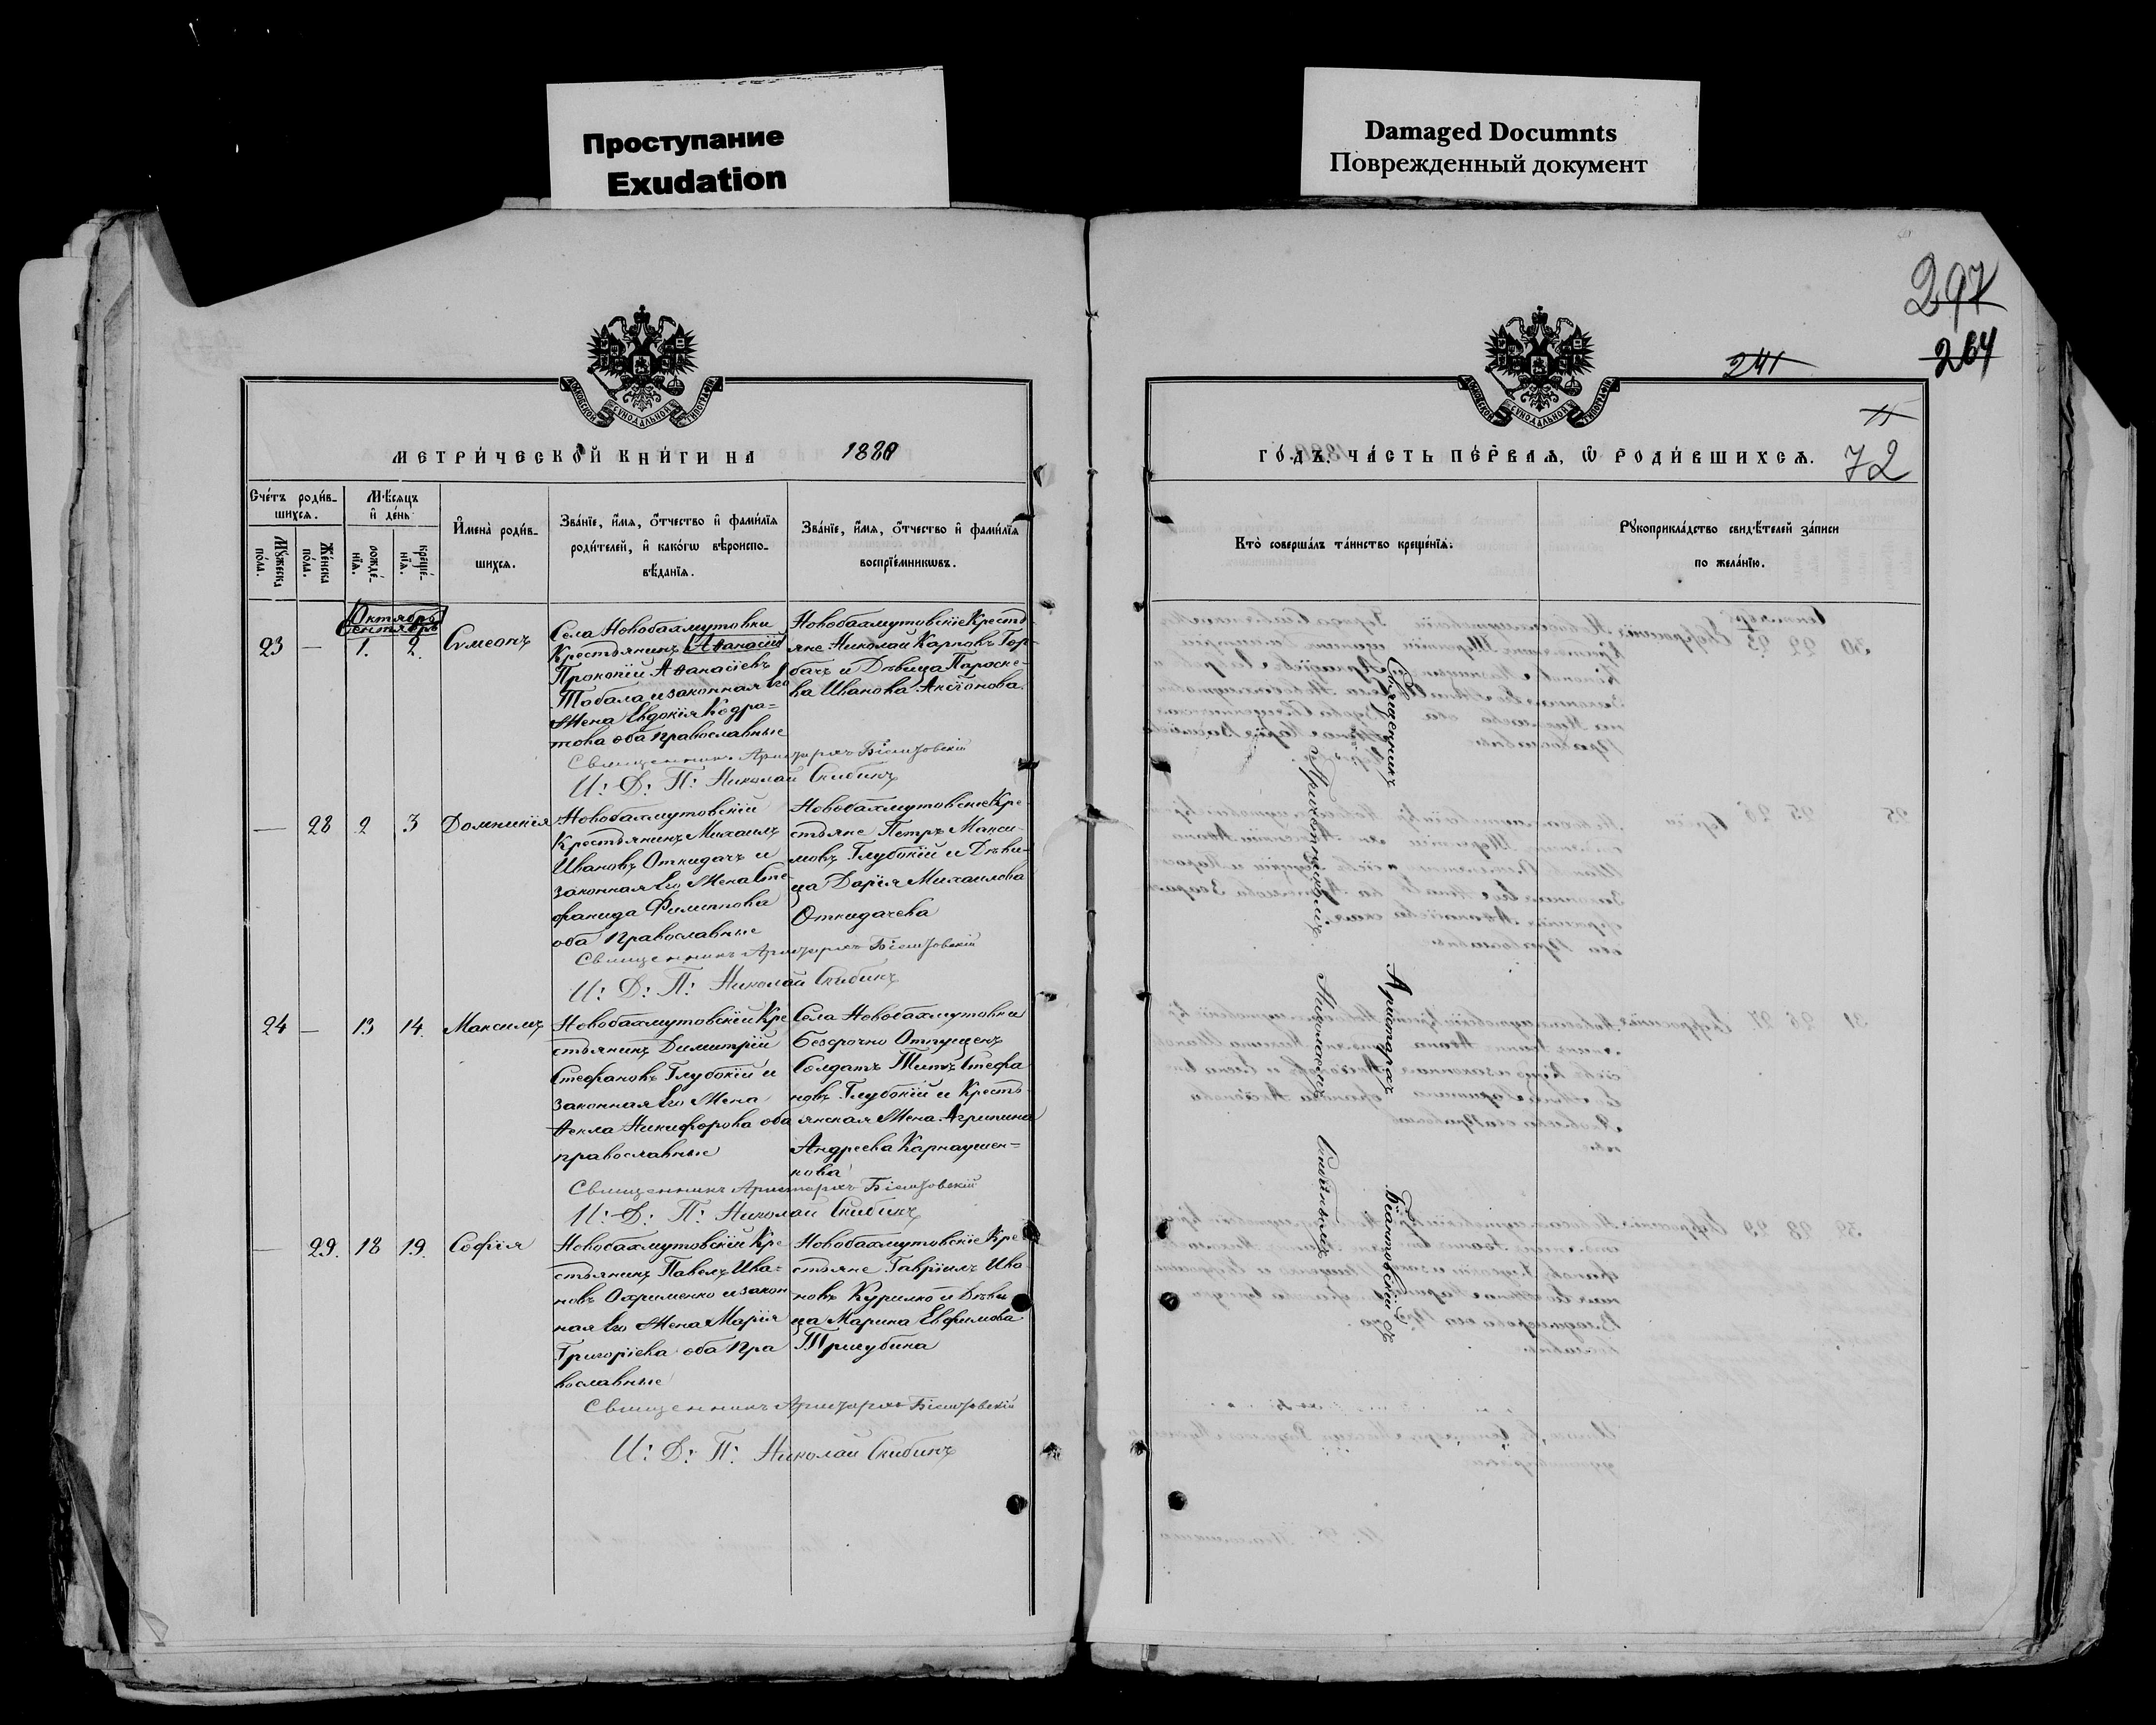 Проступание
Exudation
Damaged Documnts
Поврежденный документ
297
264
241
72
МЕТРИ́ЧЕСКОЙ КНИ́ГИ НА 1880
ГО́ДЪ, ЧА́СТЬ ПЕ́РВАЯ, Ѡ РОДИ́ВШИХСЯ.
Сче́тъ роди́в-
шихся.
Мѣ́сяцъ
и҆ де́нь
Мꙋ́жеска
по́ла.
Же́нска
по́ла.
рожде́-
нїя.
креще́-
нїя.
И҆мена̀ роди́в-
шихся.
Зва́нїе, и҆́мя, ѻ҆́тчество и҆ фами́лїя
роди́телей, и҆ како́гѡ вѣроиспо-
вѣ́данїя.
Зва́нїе, и҆́мя, ѻ҆́тчество и҆ фами́лїя
воспрїе́мникѡвъ.
Кто̀ соверша́лъ та́инство креще́нїя.
Рꙋкоприкла́дство свидѣ́телей за́писи
по жела́нїю.
Октябрь
Сентябрь
23 — 1. 2. Сѵмеонъ
Села Новобахмутовки
Крестьянинъ Аѳанасій
Прокопій Аѳанасіевъ
Тобала и законная Его
Жена Евдокія Кодра=
това оба православные
Новобахмутовскіе Кресть-
яне Николай Карповъ Гор-
бачъ и Дѣвица Параске-
ва Иванова Аксіонова.
Священникъ Аристархъ Біантовскій
И: Д: П: Николай Скибинъ
— 28 2 3 Домникія
Новобахмутовскій
Крестьянинъ Михаилъ
Ивановъ Откидачъ и
законная Его Жена Сте-
фанида Филиппова
оба Православные
Новобахмутовскіе Кре-
стьяне Петръ Макси-
мовъ Глубокій и Дѣви-
ца Дарія Михаилова
Откидачева
Священникъ Аристархъ Біантовскій
И: Д: П: Николай Скибинъ
24 — 13 14. Максимъ
Новобахмутовскій Кре
стьянинъ Димитрій
Стефановъ Глубокій и
законная Его Жена
Ѳекла Никифорова оба
православные
Села Новобахмутовки
Безсрочно Отпущенъ
Солдатъ Титъ Стефа
новъ Глубокій и Кресть-
янская Жена Агрипина
Андреева Карнаушен=
кова
Священникъ Аристархъ Біантовскій
И: Д: П: Николай Скибинъ
— 29. 18 19. Софія
Новобахмутовскій Кре
стьянинъ Павелъ Ива=
новъ Охрименко и закон
ная Его Жена Марія
Григоріева оба Пра
вославные
Новобахмутовскіе Кре
стьяне Гавріилъ Ива
новъ Курилко и Дѣви
ца Марина Евфимова
Тригубина
Священникъ Аристархъ Біантовскій
И: Д: П: Николай Скибинъ
Священникъ Аристархъ Біантовскій съ
Причетникомъ Николаемъ Скибинымъ